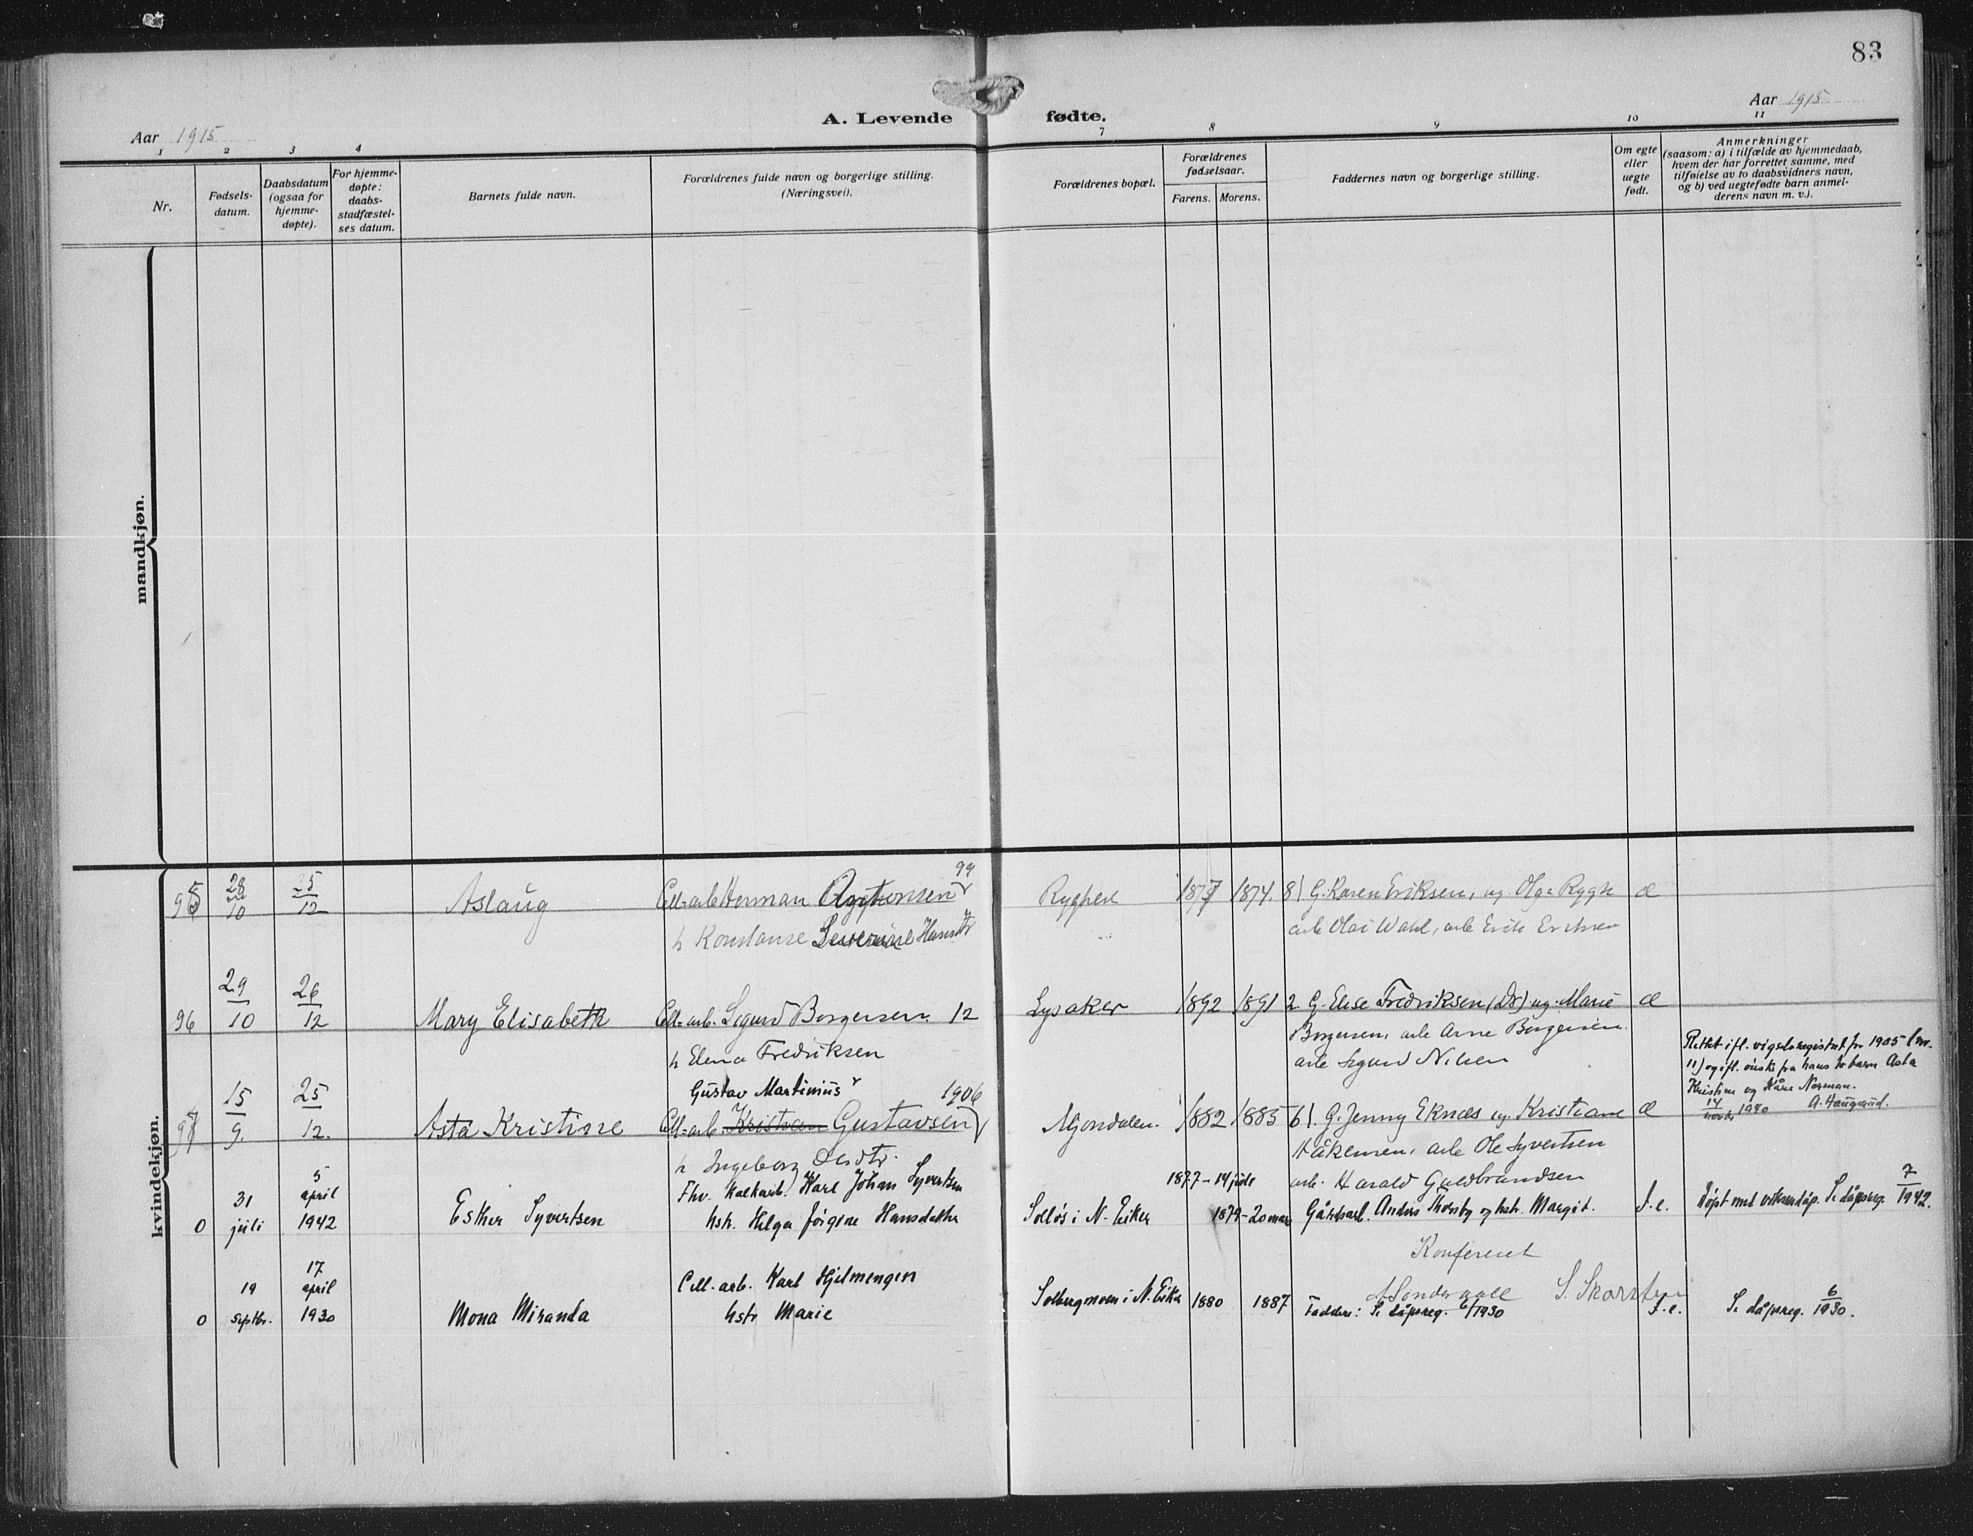 83
Aar 1915
A. Levende fødte.
Aar 1915
1 2 3 4 7 8 9 10 11
Nr.
Fødsels-
datum.
Daabsdatum
(ogsaa for
hjemme-
døpte).
For hjemme-
døpte:
daabs-
stadfæstel-
ses datum.
Barnets fulde navn.
Forældrenes fulde navn og borgerlige stilling.
(Næringsvei).
Forældrenes bopæl.
Forældrenes
fødselsaar.
Farens. Morens.
Faddernes navn og borgerlige stilling.
Om egte
eller
uegte
født.
Anmerkninger
(saasom: a) i tilfælde av hjemmedaab,
hvem der har forrettet samme, med
tilføielse av to daabsvidners navn,
og b) ved uegtefødte barn anmel-
derens navn m. v.).
mandkjøn.
kvindekjøn.
95 28/10 25/12 Aslaug Cell-arb Herman 99
h Konstanse Severine Hansdtr
1874. G. Karen Eriksen, ug. Olga Rygh
arb Olai Wahl, arb Erik Eriksen
96 29/10 26/12 Mary Elisabeth Cell-arb. Sigurd Borgersen. 12
h Elena Fredriksen
Lysaker 1892 1891 2 G. Elise Fredriksen (Dr) ug. Marie
Borgersen, arb Arne Borgersen
arb Sigurd Nilsen
97 15/9. 25/12. Asta Kristine Gustav Martinius 1906
Cell-arb. Kristian Gustavsen
h Ingeborg Olsdtr.
Mjøndalen. 1882 1885 G. Jenny Eknæs ug. Kristiane
Håkensen, arb Ole Syvertsen
arb. Harald Guldbrandsen
Rettet ifl. vigselsregistret for 1905 (nr.
11) og ifl. ønske fra hans to barn Asta
Kristine og Kåre Norman.
14/novbr 1940 A. Haugerud.
0 31 juli 5 april 1942 Esther Syvertsen
Fhv. kalkarb. Karl Johan Syvertsen
hstr. Helga Jørgine Hansdatter
i N. Eiker 1877-14 juli 1879-20 mars
Anders Thorsby og hstr. Margit.
f. e. Døpt med voksendåp. Se dåpsreg. 7/1942.
Konfereret
0 19 septbr. 17 april 1930 Mona Miranda
Cell. arb. Karl Hjelmengen
hstr Marie
Solbergmoen i N. Eiker 1880 1887
Faddere: Se dåpsreg. 6/1930
f. e. Se dåpsreg. 6/1930.